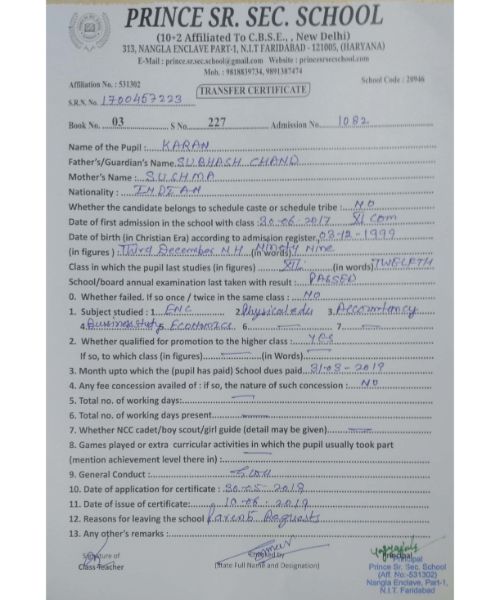 PRINCE SR. SEC. SCHOOL
(10+2 Affiliated To C.B.S.E., , New Delhi)
313, NANGLA ENCLAVE PART-1, N.I.T FARIDABAD - 121005, (HARYANA)
E-Mail : prince.sr.sec.school@gmail.com Website : princesrsecschool.com
Moh. : 9818839734, 9891387474
Affiliation No. : 531302 School Code : 20946
TRANSFER CERTIFICATE
S.R.N. No. 1700457223
Book No. 03 S No. 227 Admission No. 1082
Name of the Pupil : KARAN
Father's/Guardian's Name SUBHASH CHAND
Mother's Name : SUSHMA
Nationality : INDIAN
Whether the candidate belongs to schedule caste or schedule tribe : NO
Date of first admission in the school with class 30-06-2017 XI COM
Date of birth (in Christian Era) according to admission register 03-12-1999
(in figures) Third December N.H Ninety Nine (in words)
Class in which the pupil last studies (in figures) XII (in words) TWELFTH
School/board annual examination last taken with result : PASSED
0. Whether failed. If so once / twice in the same class : NO
1. Subject studied : 1. ENC 2. Physical edu 3. Accountancy
4. Business study 5. Economics 6. 7.
2. Whether qualified for promotion to the higher class : YES
If so, to which class (in figures) (in Words)
3. Month upto which the (pupil has paid) School dues paid 31-03-2019
4. Any fee concession availed of : if so, the nature of such concession : NO
5. Total no. of working days:
6. Total no. of working days present
7. Whether NCC cadet/boy scout/girl guide (detail may be given)
8. Games played or extra curricular activities in which the pupil usually took part
(mention achievement level there in) :
9. General Conduct :
10. Date of application for certificate : 30-05-2019
11. Date of issue of certificate: 10-06-2019
12. Reasons for leaving the school Parent Requests
13. Any other's remarks :
Signature of
Class Teacher
(State Full Name and Designation)
Principal
Principal
Prince Sr. Sec. School
(Aff. No.-531302)
Nangla Enclave, Part-1,
N.I.T. Faridabad